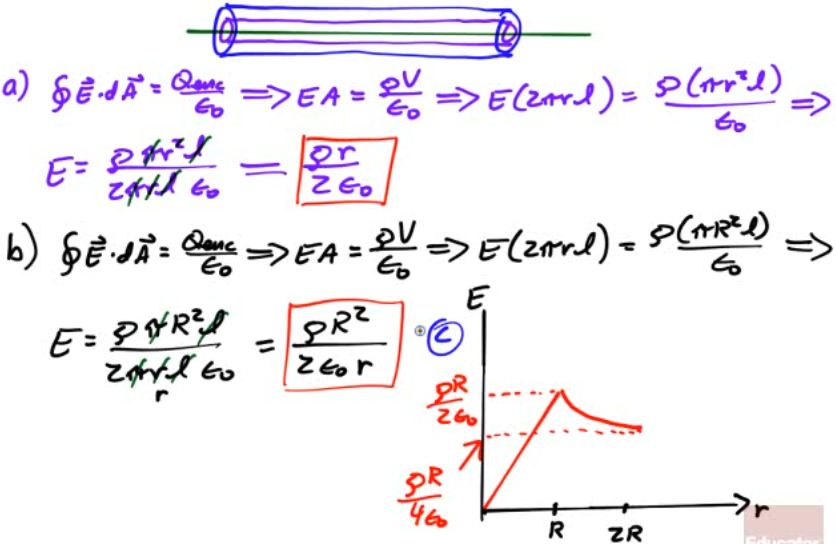 a) ∮E⃗·dA⃗ = Qenc/ε₀ ⟹ EA = ρV/ε₀ ⟹ E(2πrl) = ρ(πr²l)/ε₀ ⟹
E = ρπr²l/2πrl ε₀ = ρr/2ε₀
b) ∮E⃗·dA⃗ = Qenc/ε₀ ⟹ EA = ρV/ε₀ ⟹ E(2πrl) = ρ(πR²l)/ε₀ ⟹
E = ρπR²l/2πrl ε₀ = ρR²/2ε₀r
r
c
E
ρR/2ε₀
ρR/4ε₀
R
2R
r
Educator